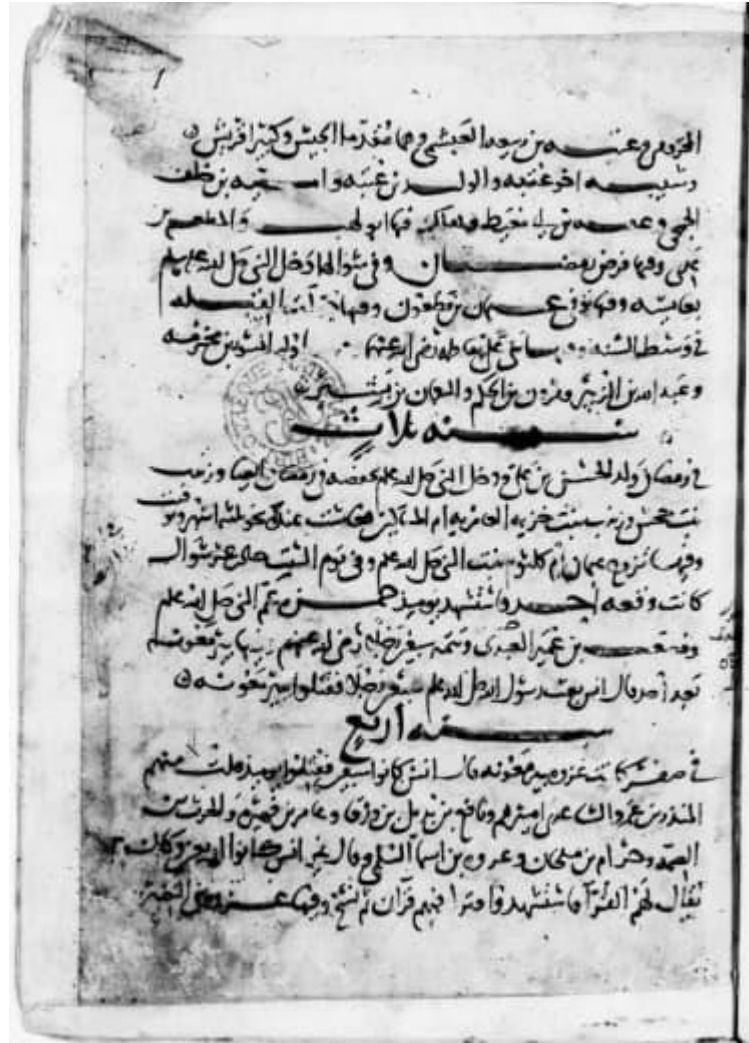 المخزومي وعتبه بن ربيعه العبشمي وهما مقدما الجيش وكبيرا قريش
وشيبه اخو عتبه والوليد بن عتبه واميه بن خلف
الجمحي وعقبه بن ابي معيط وهلك فيها ابو لهب والمطعم بن
عدي وفيها فرض رمضان وفي شوالها دخل النبي صلى الله عليه وسلم
بعايشه وفيها توفي عثمان بن مظعون وفيها القبله
في وسط السنه وفيها علي بفاطمه رضي الله عنهما المسور بن مخرمه
وعبد الله بن الزبير ومرون بن الحكم والنعمان بن بشير
سنه ثلاث
في رمضان ولد الحسن بن علي ودخل النبي صلى الله عليه وسلم بحفصه وفي رمضان ايضا وزينب
بنت جحش وزينب بنت خزيمه العامريه ام المساكين فعاشت عنده نحو ثلثه اشهر وتوفيت
وفيها تزوج عثمان ام كلثوم بنت النبي صلى الله عليه وسلم وفي يوم السبت حادي عشر شوال
كانت وقعه احد واستشهد يوميذ حمزه عم النبي صلى الله عليه وسلم
ومصعب بن عمير العبدري وتتمه سبعين رجلا رضي الله عنهم بير معونه
بعد احد قال انس بعث رسول الله صلى الله عليه وسلم سبعين رجلا فقتلوا ببير معونه
سنه اربع
في صفر كانت غزوه بير معونه قال انس كانوا سبعين فقتلوا يوميذ منهم
المنذر بن عمرو الساعدي اميرهم ونافع بن بديل بن ورقا وعامر بن فهيره والحرث بن
الصمه وحرام بن ملحان وعروه بن اسما السلمي وقال غير انس كانوا اربعين وكان
يقال لهم القرا فاستشهدوا فيهم قران ثم نسخ وفيها غزوه بني النضير